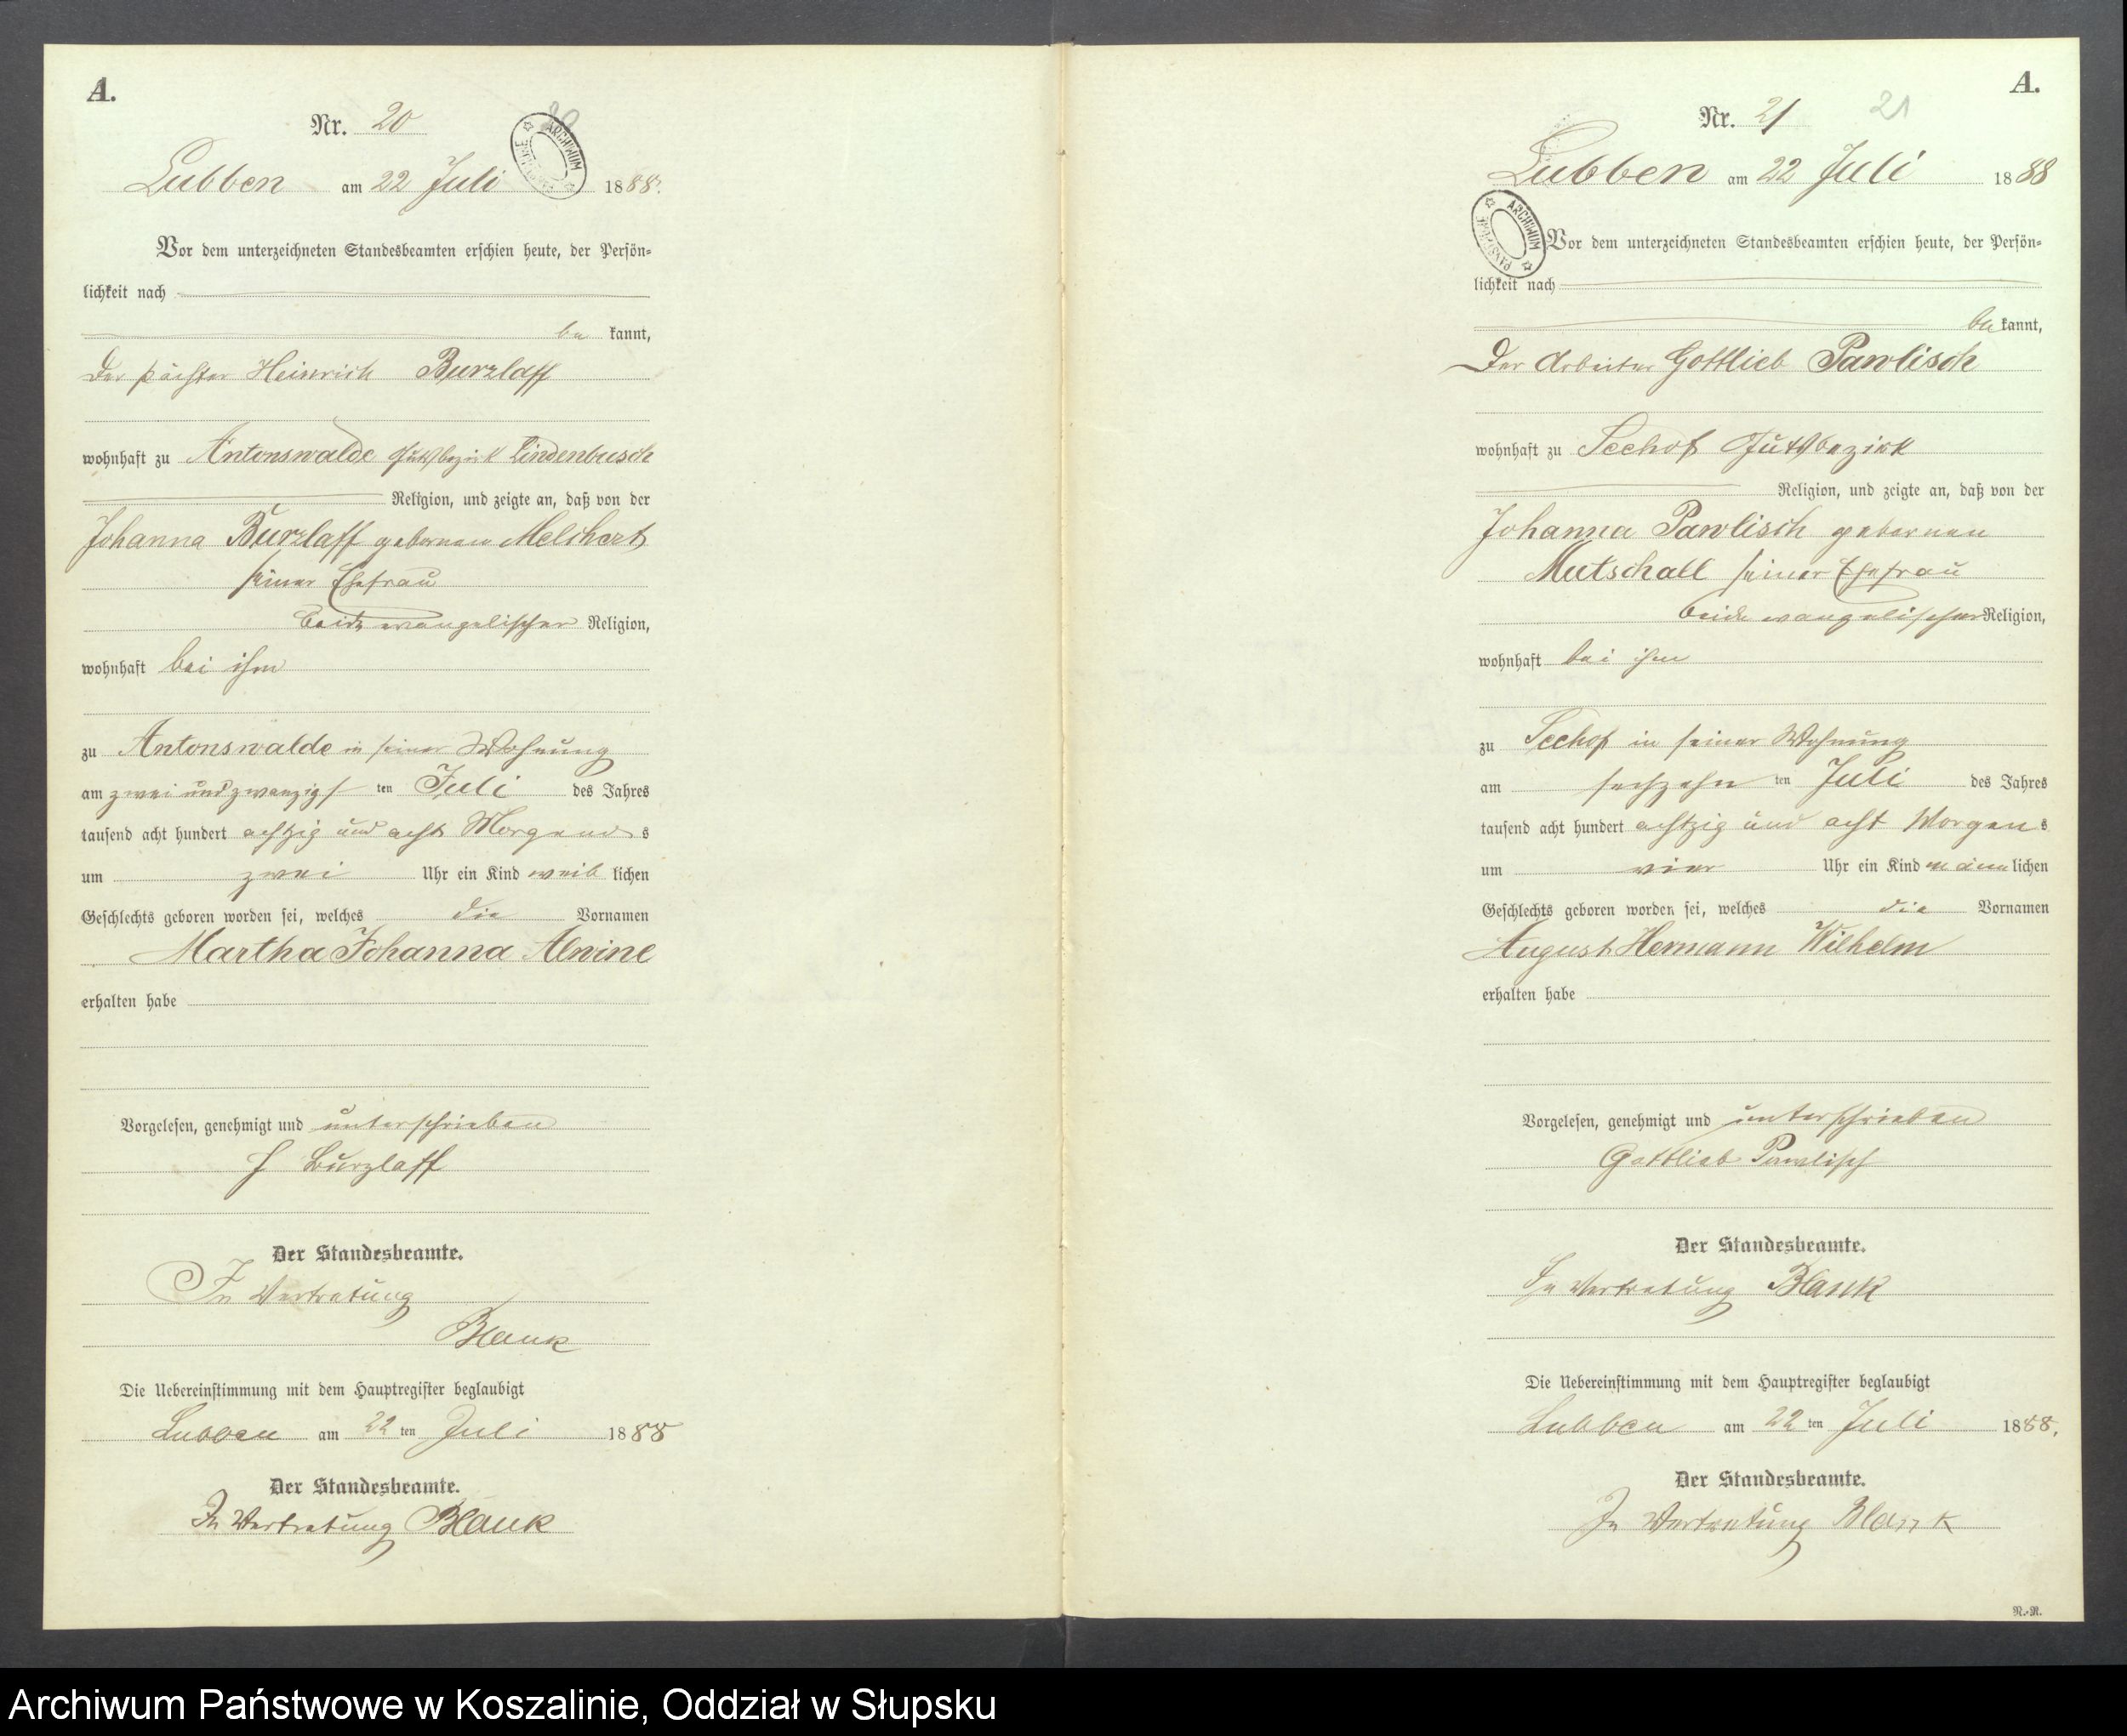 A.
Nr. 20
20
ARCHIWUM
Lubben am 22 Juli 1888.
Vor dem unterzeichneten Standesbeamten erschien heute, der Persön-
lichkeit nach
be kannt,
Der Pächter Heinrich Burzlaff
wohnhaft zu Antonswalde Gutsbezirk Lindenbusch
Religion, und zeigte an, daß von der
Johanna Burzlaff geborenen Melchert
seiner Ehefrau
beide evangelischer Religion,
wohnhaft bei ihm
zu Antonswalde in seiner Wohnung
am zwei und zwanzigs ten Juli des Jahres
tausend acht hundert achtzig und acht Morgens s
um zwei Uhr ein Kind weib lichen
Geschlechts geboren worden sei, welches die Vornamen
Martha Johanna Alwine
erhalten habe
Vorgelesen, genehmigt und unterschrieben
H Burzlaff
Der Standesbeamte.
In Vertretung
Blank
Die Uebereinstimmung mit dem Hauptregister beglaubigt
Lubben am 22 ten Juli 1888
Der Standesbeamte.
In Vertretung Blank
A.
Nr. 21
21
Lubben am 22 Juli 1888
ARCHIWUM
Vor dem unterzeichneten Standesbeamten erschien heute, der Persön-
lichkeit nach
be kannt,
Der Arbeiter Gottlieb Pawlisch
wohnhaft zu Seehof Gutsbezirk
Religion, und zeigte an, daß von der
Johanna Pawlisch geborenen
Mutschall seiner Ehefrau
beide evangelischer Religion,
wohnhaft bei ihm
zu Seehof in seiner Wohnung
am sechzehn ten Juli des Jahres
tausend acht hundert achtzig und acht Morgen s
um vier Uhr ein Kind männ lichen
Geschlechts geboren worden sei, welches die Vornamen
August Hermann Wilhelm
erhalten habe
Vorgelesen, genehmigt und unterschrieben
Gottlieb Pawlisch
Der Standesbeamte.
In Vertretung Blank
Die Uebereinstimmung mit dem Hauptregister beglaubigt
Lubben am 22 ten Juli 1888.
Der Standesbeamte.
In Vertretung Blank
R.-R.
Archiwum Państwowe w Koszalinie, Oddział w Słupsku